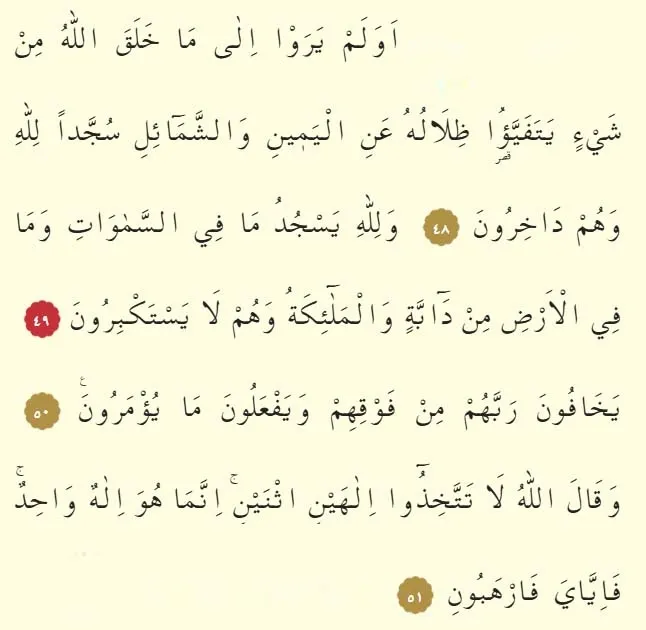 اَوَلَمْ يَرَوْا اِلٰى مَا خَلَقَ اللّٰهُ مِنْ
شَيْءٍ يَتَفَيَّؤُ۬ا ظِلَالُهُ عَنِ الْيَم۪ينِ وَالشَّمَٓائِلِ سُجَّداً لِلّٰهِ
قصر
وَهُمْ دَاخِرُونَ ٤٨ وَلِلّٰهِ يَسْجُدُ مَا فِي السَّمٰوَاتِ وَمَا
فِي الْاَرْضِ مِنْ دَٓابَّةٍ وَالْمَلٰٓئِكَةُ وَهُمْ لَا يَسْتَكْبِرُونَ ٤٩
يَخَافُونَ رَبَّهُمْ مِنْ فَوْقِهِمْ وَيَفْعَلُونَ مَا يُؤْمَرُونَ ع ٥٠
وَقَالَ اللّٰهُ لَا تَتَّخِذُٓوا اِلٰهَيْنِ اثْنَيْنِۚ اِنَّمَا هُوَ اِلٰهٌ وَاحِدٌۚ
فَاِيَّايَ فَارْهَبُونِ ٥١